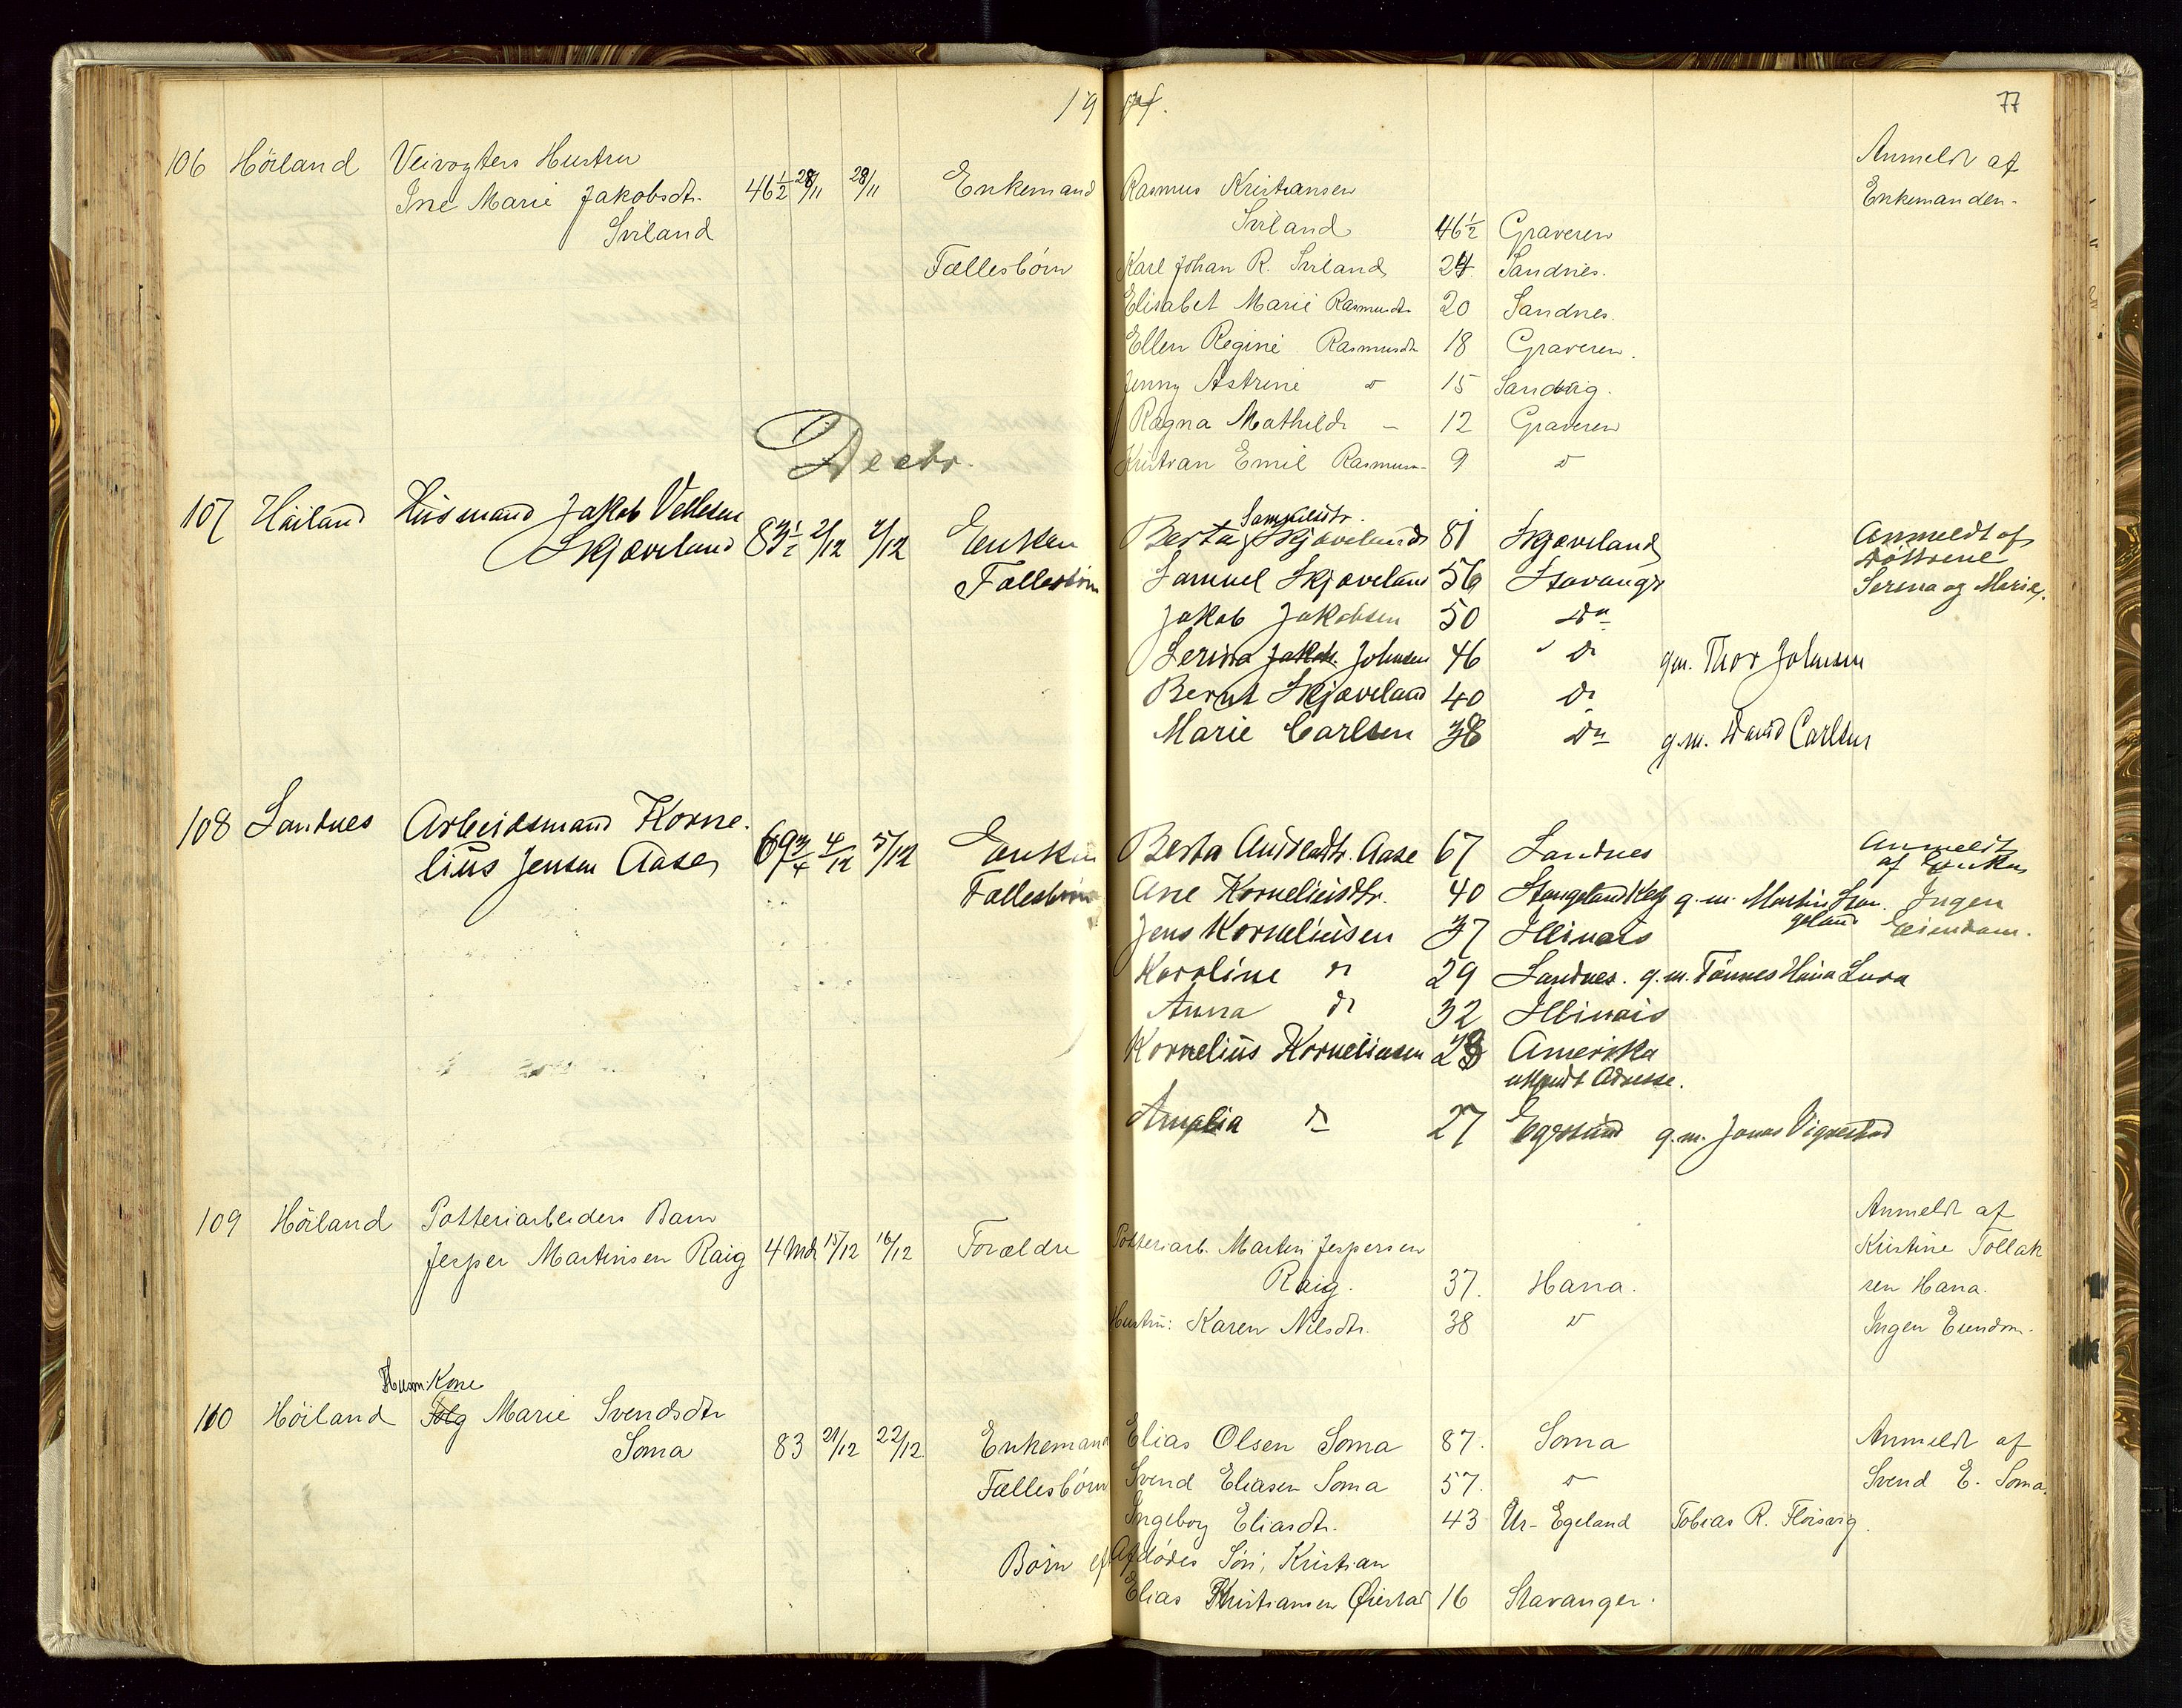 19
77
106 Höiland Veivogters Hustru
Ine Marie Jakobsdtr. 46 1/2 28/11 28/11 Enkemand Rasmus Kristiansen Anmeldt af Enkemanden.
Sviland Sviland 46 1/2 Graveren
Fællesbörn Karl Johan R. Sviland 24 Sandnes.
Elisabet Marie Rasmusdtr 20 Sandnes.
Ellen Regine Rasmusdtr 18 Graveren.
Jenny Astrine do 15 Sandvig.
Ragna Mathilde - 12 Graveren
Kristian Emil Rasmusen 9 do
Decbr.
107 Höiland Husmand Jakob Vellesen
Skjæveland 83 1/2 2/12 4/12 Enken Berta Samuelsdtr. Skjæveland 81 Skjæveland Anmeldt af
Døttrene
Fællesbörn Samuel Skjæveland 56 Stavanger Serina og Marie.
Jakob Jakobsen 50 do
Serina Jakobs. Johnsen 46 do gm. Thor Johnsen
Bernt Skjæveland 40 do
Marie Carlsen 38 do g.m. David Carlsen
108 Sandnes Arbeidsmand Korne-
lius Jensen Aase 69 3/4 4/12 5/12 Enken Berta Andreadtr. Aase 67 Sandnes Anmeldt
af Enken
Fællesbörn Ane Korneliusdtr. 40 Stangeland g.m. Martin Stan- Ingen
geland Eiendom.
Jens Korneliusen 37 Illinois
Karoline do 29 Sandnes. g.m. Tönnes Lura
Anna do 32 Illinois
Kornelius Korneliusen 28 Amerika
ukjendt Adresse.
Amalia do 27 Egersund g.m. Jonas Vignestad
109 Höiland Potteriarbeiders Barn Anmeldt af
Jesper Martinsen Raig 4 Md. 15/12 16/12 Forældre Potteriarb. Martin Jespersen Kristine Tollak
Raig. 37. Hana. sen Hana.
Hustru: Karen Nilsdtr. 38 do Ingen Eiendom.
Husm. Kone
110 Höiland Marie Svendsdtr
Soma 83 21/12 22/12 Enkemand Elias Olsen Soma 87. Soma Anmeldt af
Fællesbörn Svend Eliasen Soma 57. do Svend E. Soma.
Ingeborg Eliasdtr. 43 Ur-Egeland Tobias R. Floisvig.
Börn ef Afdödes Sön, Kristian
Elias Kristiansen 16 Stavanger.